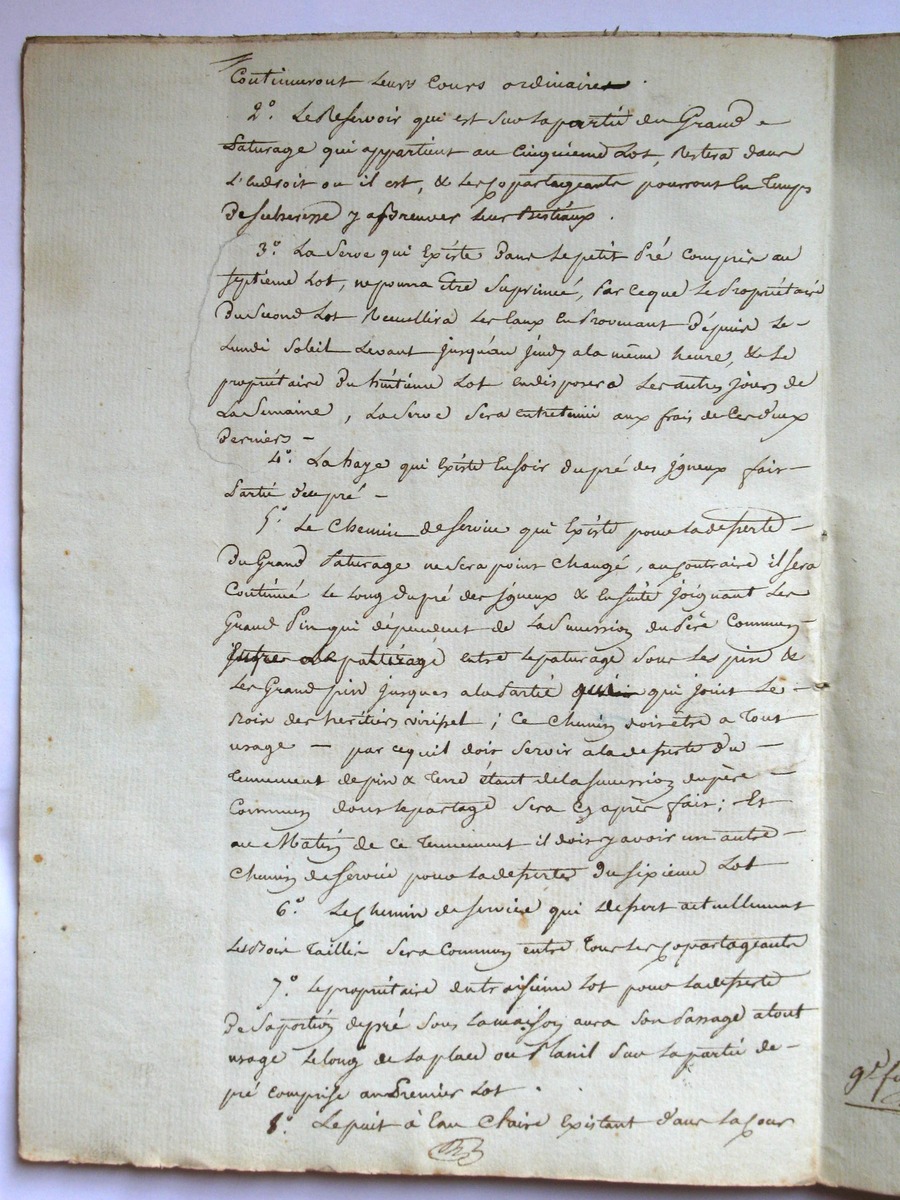 Continueront leurs cours ordinaires.
2°. Le Reservoir qui est sur la partie du Grand
Paturage qui appartient au Cinquieme Lot, Restera dans
L'endroit ou il est, & les copartageants pourront En Temps
De secheresse y abreuver leur Bestiaux.
3°. La Serve qui Existe Dans le petit Pré compris au
septieme Lot, ne pourra Etre suprimée, Par ce que le Propriétaire
Du second Lot Recueillira les Eaux En Provenant Dépuis le
Lundi Soleil Levant jusqu'au jeudy a la même heure, & le
propriétaire Du huitieme Lot en disposera les autres jours de
La Semaine, La Serve Sera entretenue aux frais de Ces deux
Derniers —
4°. La haye qui Existe En soir du pré des jgneux fait
Partie du pré —
5°. Le Chemin de Service qui Existe pour la desserte
Du Grand Paturage ne Sera point Changé, au Contraire il sera
Continué le long du pré des jgneux & Ensuite joignant Les
Grand Pin qui dépendent de la Sucession du Père Commun
entre le paturage sous les pins &
les Grand pin jusques a la Partie qui joint le
Bois des heritiers ; ce Chemin doit être a Tout
usage — par ce qu'il doit Servir a la desserte du —
Tennement de pin & Terre étant de la sucession du père —
Commun dont le partage Sera Cy après fait; Et
au Matin de ce Tennement il doit y avoir un autre
Chemin de Service pour la desserte Du Sixieme Lot
6°. Le Chemin de Service qui Desert actuellement
Les Bois Taillis Sera Commun entre Tous les copartageants
7°. Le propriétaire du troisieme Lot pour la desserte
De Sa portion de pré Sous la maison aura Son Passage a tout
usage Le long de la place ou Planil Sur la partie de
pré comprise au Premier Lot.
8°. Le puit à Eau Claire Existant dans la Cour